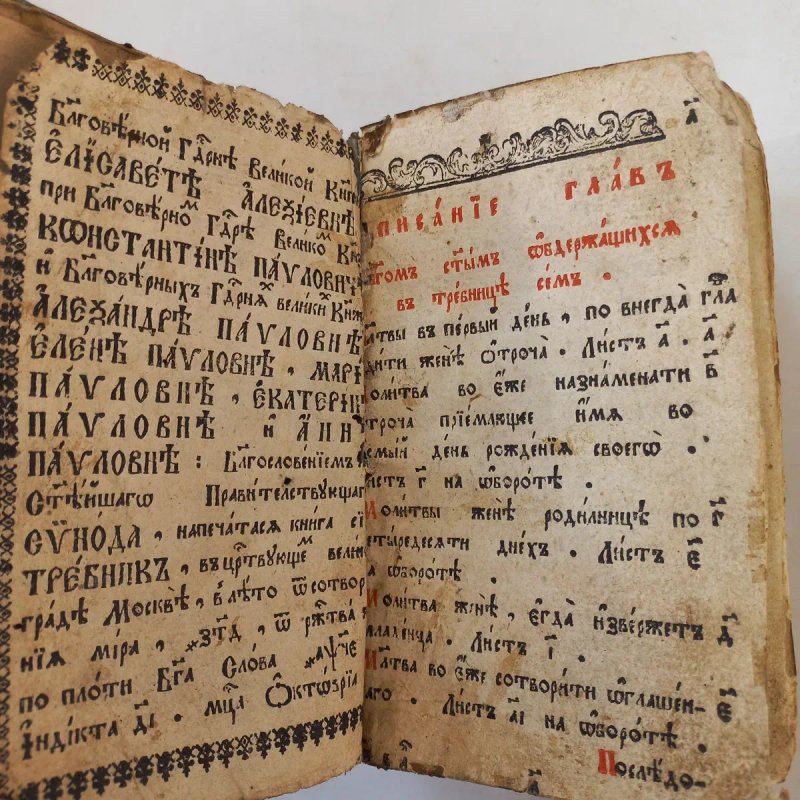 Бл҃говѣ́рной Гд҃рнѣ Вели́кой Кнѧг
Є҆лїсаве́тѣ А҆леѯі́евнѣ
при Бл҃говѣ́рномъ Гд҃рѣ Вели́комъ Кн
Кѡнстанті́нѣ Па́ѵловичѣ
и҆ Бл҃говѣ́рныхъ Гд҃рнѧхъ вели́кихъ Кнѧж
А҆леѯа́ндрѣ Па́ѵловнѣ
Є҆ле́нѣ Па́ѵловнѣ, Марі
Па́ѵловнѣ, Є҆катери́н
Па́ѵловнѣ и҆ А҆́нн
Па́ѵловнѣ: Бл҃гослове́нїемъ
Ст҃ѣ́йшагѡ Прави́телствꙋющаг
Сѷно́да, напеча́тасѧ кни́га сїѧ̀
Тре́бникъ, въ ца́рствꙋющемъ вели́к
гра́дѣ Москвѣ̀, въ лѣ́то ѿ сотвор
нїѧ мі́ра, ҂зт҃д, ѿ рж҃тва̀
по пло́ти Бг҃а Сло́ва ҂аѱч҃е
і҆нді́кта д҃і. мц҃а Ѻ҆ктѡ́врїа
а҃
писа́нїе гла́въ
ст҃ы́мъ ѡ҆бдержа́щихсѧ
въ тре́бницѣ се́мъ.
твы въ пе́рвый де́нь, по внегда̀
ди́ти женѣ̀ ѻ҆троча̀. Ли́стъ а҃. а҃
оли́тва во є҆́же назна́менати в҃
троча̀ прїе́млющее и҆́мѧ во
смы́й де́нь рожде́нїѧ своегѡ̀.
и́стъ г҃ на ѡ҆боро́тѣ.
Моли́твы женѣ̀ роди́лницѣ по г҃
еты́редесѧти дне́хъ. Ли́стъ є҃
на ѡ҆боро́тѣ.
Моли́тва женѣ̀, є҆гда̀ и҆зве́ржетъ д҃
младе́нца. Ли́стъ і҃.
Мл҃тва во є҆́же сотвори́ти ѡ҆глаше́н- є҃
наго. Ли́стъ а҃і на ѡ҆боро́тѣ.
Послѣ́до-